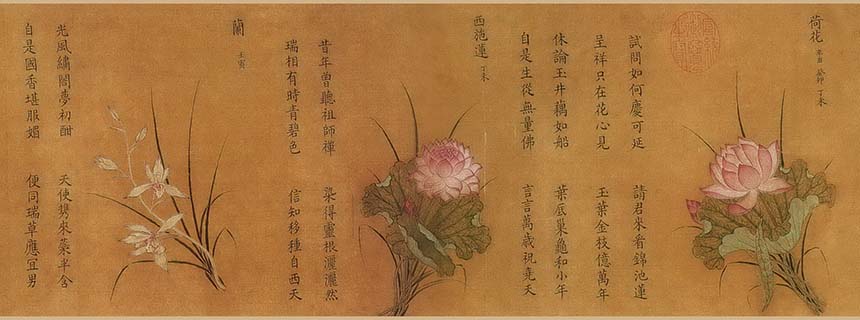 荷花 辛酉 癸卯 丁未
試問如何慶可延 請君來看錦池蓮
呈祥只在花心見 玉葉金枝億萬年
休論玉井藕如船 葉底巢龜和小年
自是生從無量佛 言言萬歲祝堯天
西施蓮 丁未
昔年曾聽祖師禪 染得靈根灑灑然
瑞相有時青碧色 信知移種自西天
蘭 壬寅
光風繡閣夢初酣 天使携來蘂半含
自是國香堪服媚 便同瑞草應宜男